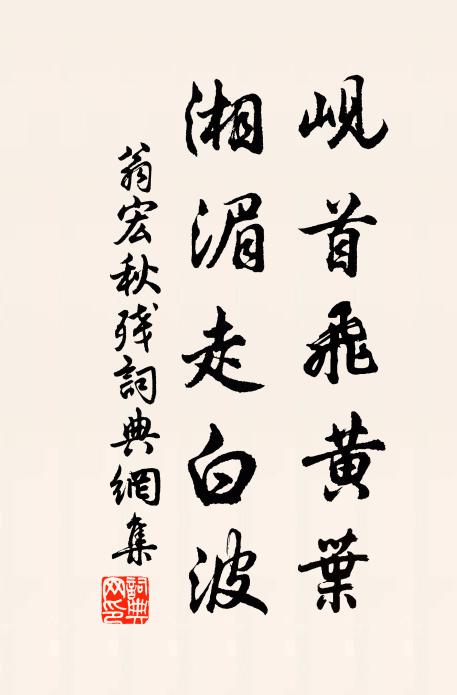 峴首飛黃葉
湘湄走白波
翁宏秋殘詞典網集
詞典網印